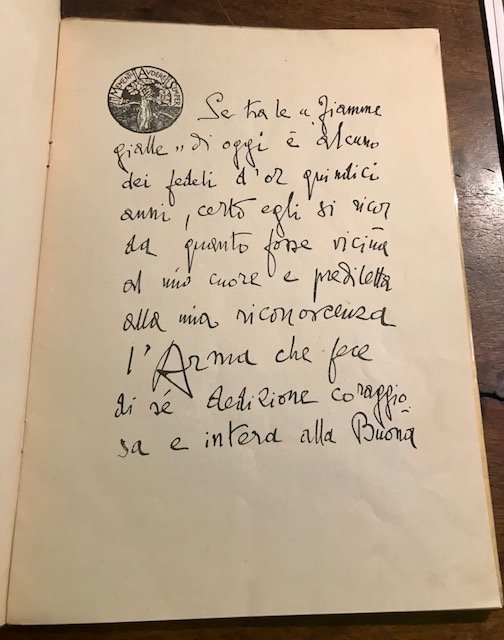 MEMENTO AUDERE SEMPER
Se tra le « Fiamme
gialle » di oggi è alcuno
dei fedeli d'or quindici
anni, certo egli si ricor
da quanto fosse vicina
al mio cuore e prediletta
alla mia riconoscenza
l'Arma che fece
di sé dedizione coraggio
sa e intera alla Buona